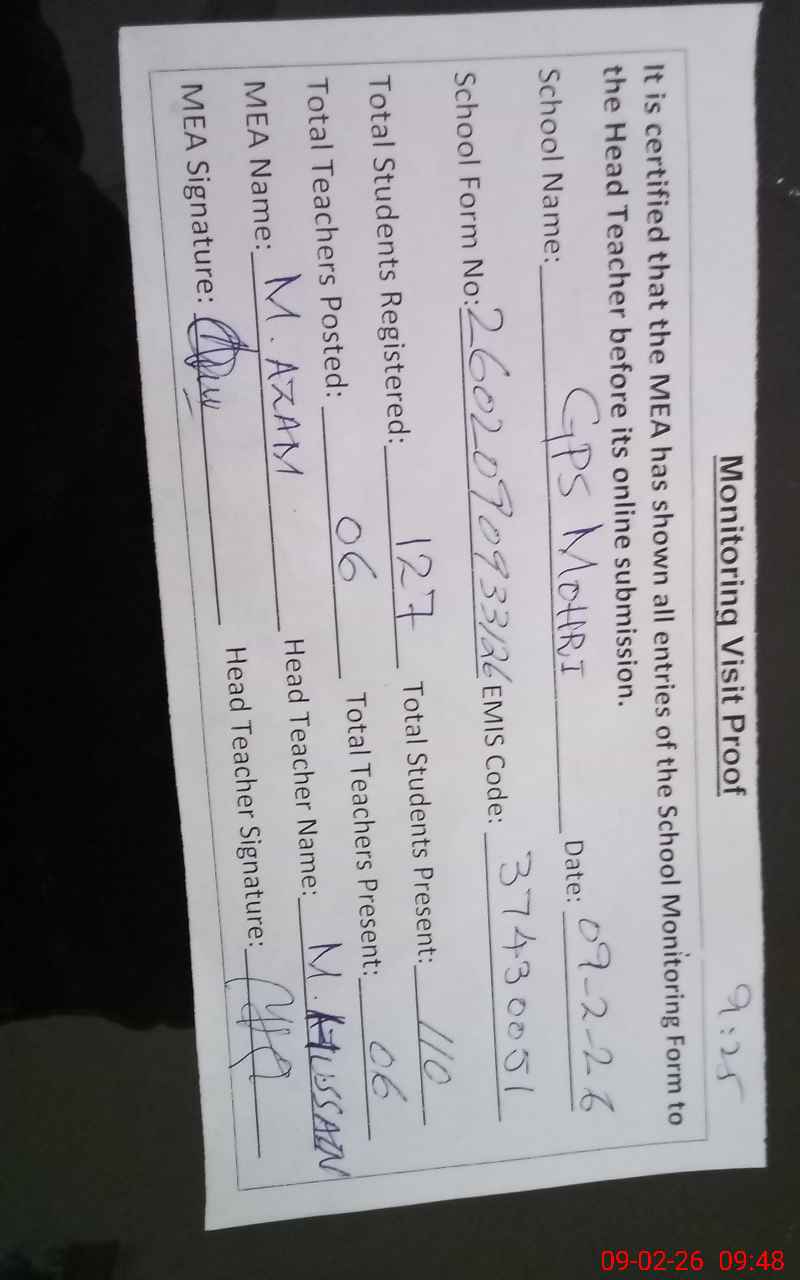 9:25
Monitoring Visit Proof
It is certified that the MEA has shown all entries of the School Monitoring Form to
the Head Teacher before its online submission.
School Name: GPS MOHRI Date: 09-2-26
School Form No: 2602090933126 EMIS Code: 37430051
Total Students Registered: 127 Total Students Present: 110
Total Teachers Posted: 06 Total Teachers Present: 06
MEA Name: M. AZAM Head Teacher Name: M. HUSSAIN
MEA Signature: Head Teacher Signature:
09-02-26 09:48